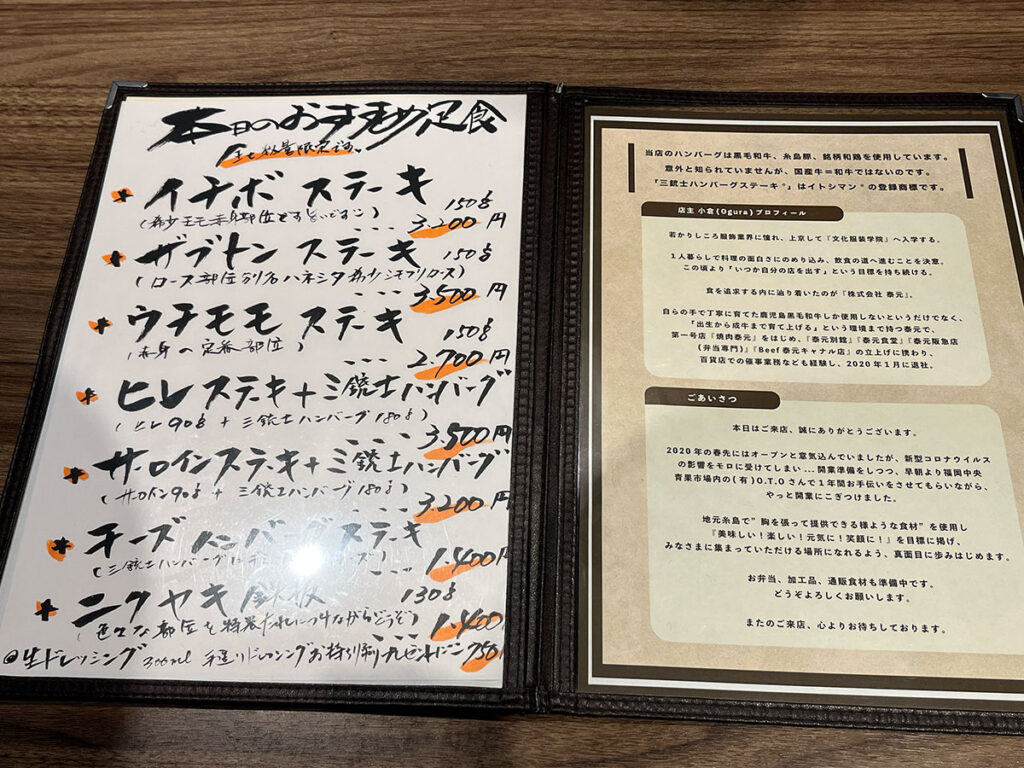 本日のおすすめ定食
全て数量限定です。
イチボ ステーキ 150g
(希少モモ赤身部位
3,200円
ザブトン ステーキ 150g
(ロース部位 別名ハネシタ 希少シモフリロース)
3,500円
ウチモモ ステーキ 150g
(赤身の定番部位)
2,700円
ヒレステーキ+三銃士ハンバーグ
(ヒレ90g + 三銃士ハンバーグ 180g)
3,500円
サーロインステーキ+三銃士ハンバーグ
(サーロイン90g + 三銃士ハンバーグ 180g)
3,200円
チーズ ハンバーグステーキ
(三銃士ハンバーグに
1,400円
ニクヤキ 鉄板 130g
(色々な部位を特製たれにつけながらどうぞ)
1,400
@生ドレッシング 300ml 手造りドレッシング お持ち帰り プレゼントに 750円
当店のハンバーグは黒毛和牛、糸島豚、銘柄和鶏を使用しています。
意外と知られていませんが、国産牛=和牛ではないのです。
「三銃士ハンバーグステーキ®」はイトシマン®の登録商標です。
店主 小倉(Ogura)プロフィール
若かりしころ服飾業界に憧れ、上京して『文化服装学院』へ入学する。
1人暮らしで料理の面白さにのめり込み、飲食の道へ進むことを決意。
この頃より「いつか自分の店を出す」という目標を持ち続ける。
食を追求する内に辿り着いたのが『株式会社 泰元』。
自らの手で丁寧に育てた鹿児島黒毛和牛しか使用しないというだけでなく、
「出生から成牛まで育て上げる」という環境まで持つ泰元で、
第一号店『焼肉泰元』をはじめ、『泰元別館』『泰元食堂』『泰元阪急店
(弁当専門)』『Beef泰元キャナル店』の立上げに携わり、
百貨店での催事業務なども経験し、2020年1月に退社。
ごあいさつ
本日はご来店、誠にありがとうございます。
2020年の春先にはオープンと意気込んでいましたが、新型コロナウイルス
の影響をモロに受けてしまい...開業準備をしつつ、早朝より福岡中央
青果市場内の(有)O.T.Oさんで1年間お手伝いをさせてもらいながら、
やっと開業にこぎつけました。
地元糸島で"胸を張って提供できる様な食材"を使用し
『美味しい!楽しい!元気に!笑顔に!』を目標に掲げ、
みなさまに集まっていただける場所になれるよう、真面目に歩みはじめます。
お弁当、加工品、通販食材も準備中です。
どうぞよろしくお願いします。
またのご来店、心よりお待ちしております。